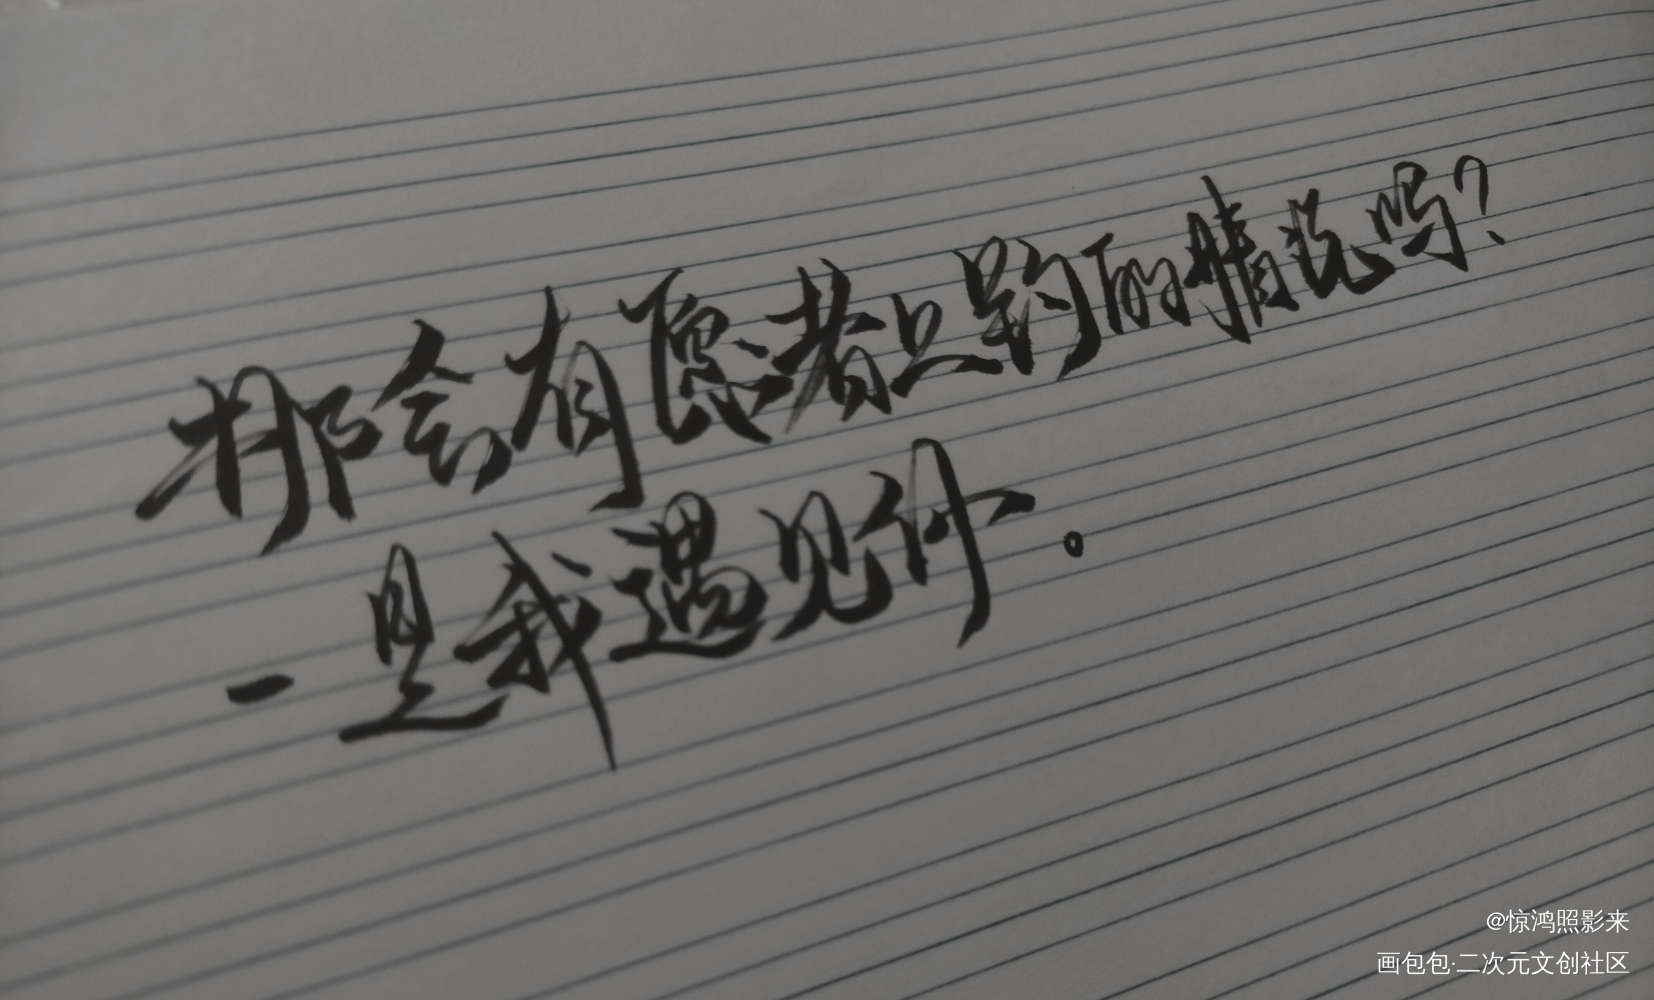 那会有愿者上钩的情况吗?
一是我遇见你。
@惊鸿照影来
画包包·二次元文创社区